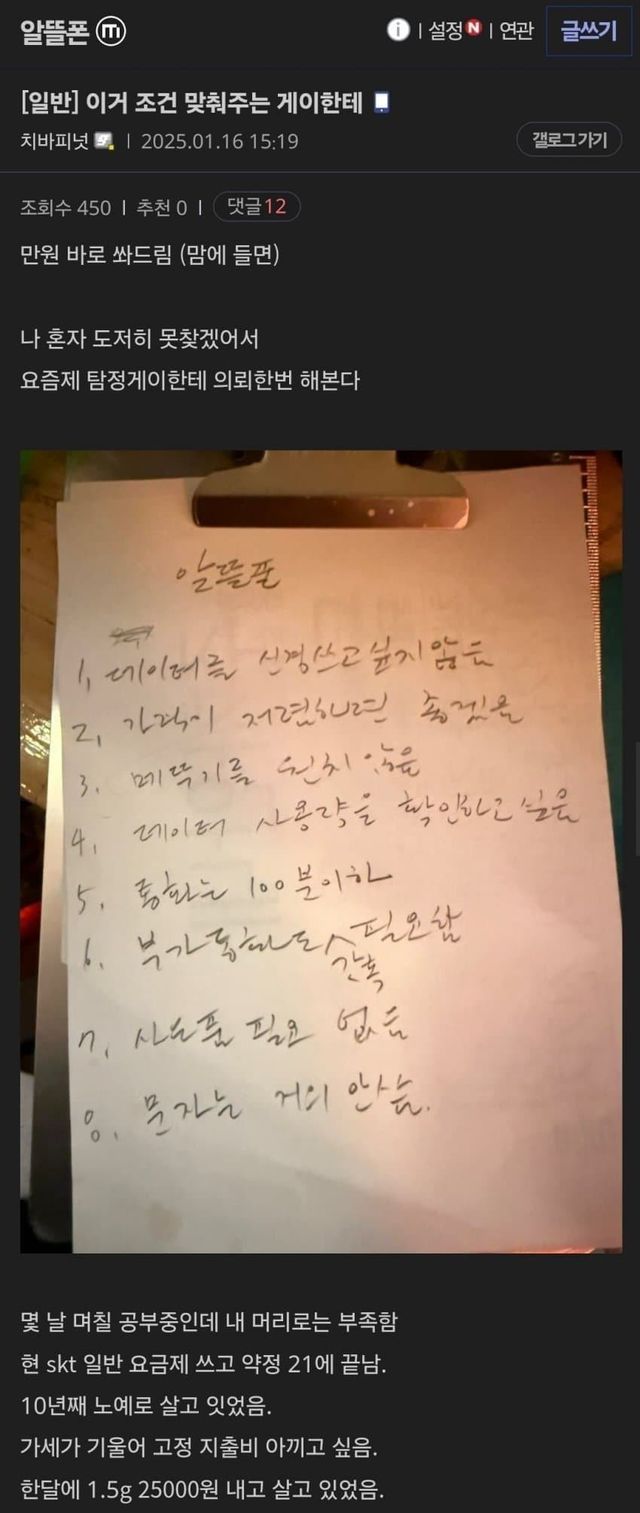 알뜰폰 ⓜ
i | 설정 N | 연관 글쓰기
[일반] 이거 조건 맞춰주는 게이한테
치바피넛 | 2025.01.16 15:19
갤로그 가기
조회수 450 | 추천 0 | 댓글 12
만원 바로 쏴드림 (맘에 들면)
나 혼자 도저히 못찾겠어서
요즘제 탐정게이한테 의뢰한번 해본다
알뜰폰
1, 데이터를 신경쓰고싶지않음
2, 가격이 저렴하면 좋겠음
3. 메뚜기를 원치 않음
4. 데이터 사용량을 확인하고싶음
5. 통화는 100분이하
6. 부가통화도 간혹 필요함
7, 사은품 필요 없음
8. 문자는 거의 안씀.
몇 날 며칠 공부중인데 내 머리로는 부족함
현 skt 일반 요금제 쓰고 약정 21에 끝남.
10년째 노예로 살고 잇었음.
가세가 기울어 고정 지출비 아끼고 싶음.
한달에 1.5g 25000원 내고 살고 있었음.